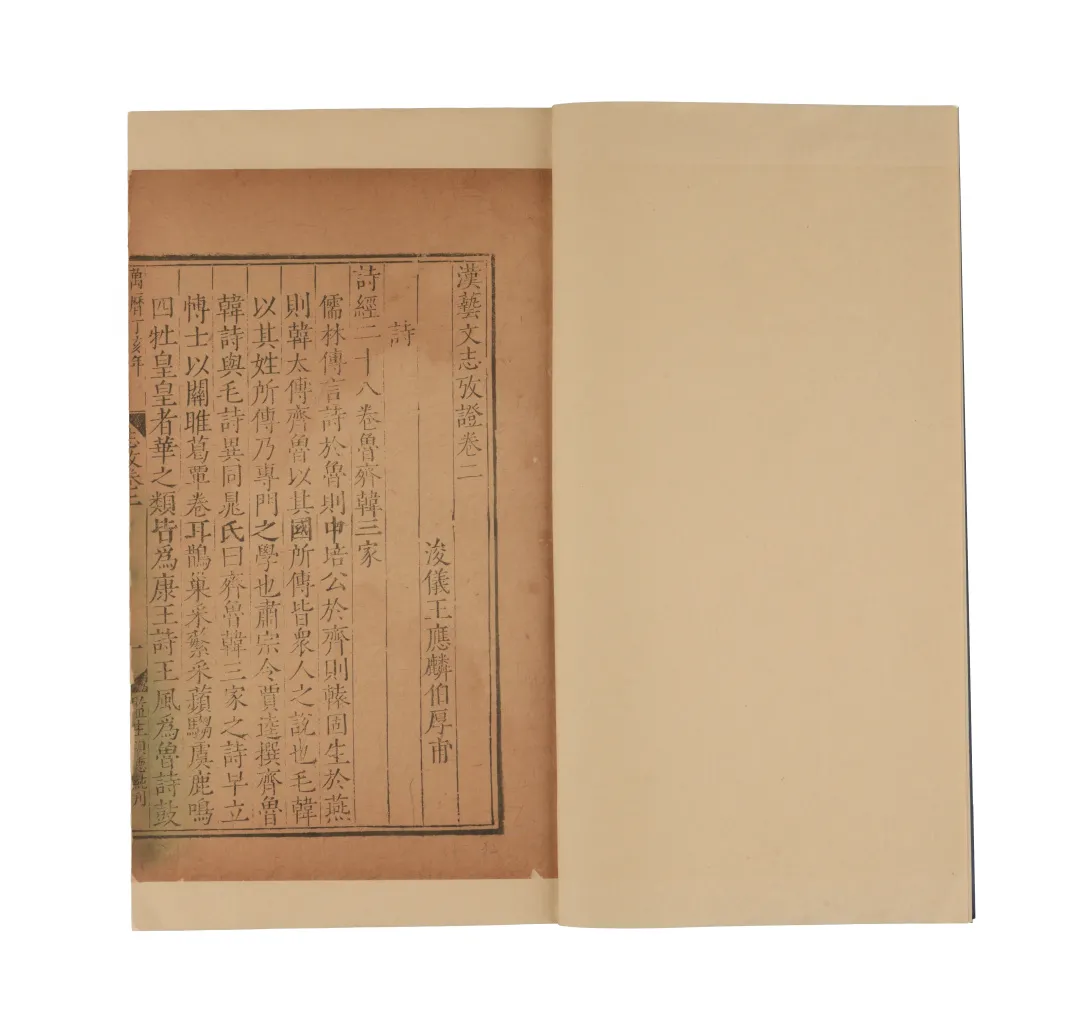 漢藝文志攷證卷二
浚儀王應麟伯厚甫
詩
詩經二十八卷魯齊韓三家
儒林傳言詩於魯則申培公於齊則轅固生於燕
則韓太傅齊魯以其國所傳皆衆人之說也毛韓
以其姓所傳乃專門之學也肅宗令賈逵撰齊魯
韓詩與毛詩異同晁氏曰齊魯韓三家之詩早立
博士以關雎葛覃卷耳鵲巢采蘩采蘋騶虞鹿鳴
四牡皇皇者華之類皆爲康王詩王風爲魯詩鼓
萬曆丁亥年
志攷卷二
一
監生
刊